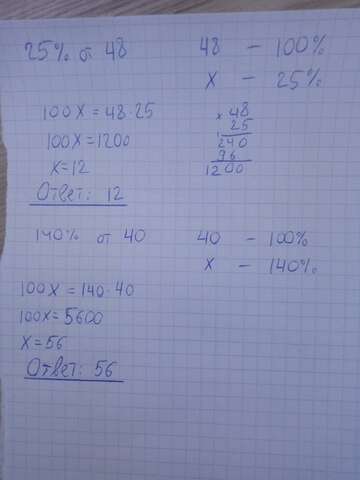 25% от 48
48 — 100%
x — 25%
100x = 48·25
100x = 1200
x = 12
Ответ: 12
× 48
25
240
96
1200
140% от 40
40 — 100%
x — 140%
100x = 140·40
100x = 5600
x = 56
Ответ: 56